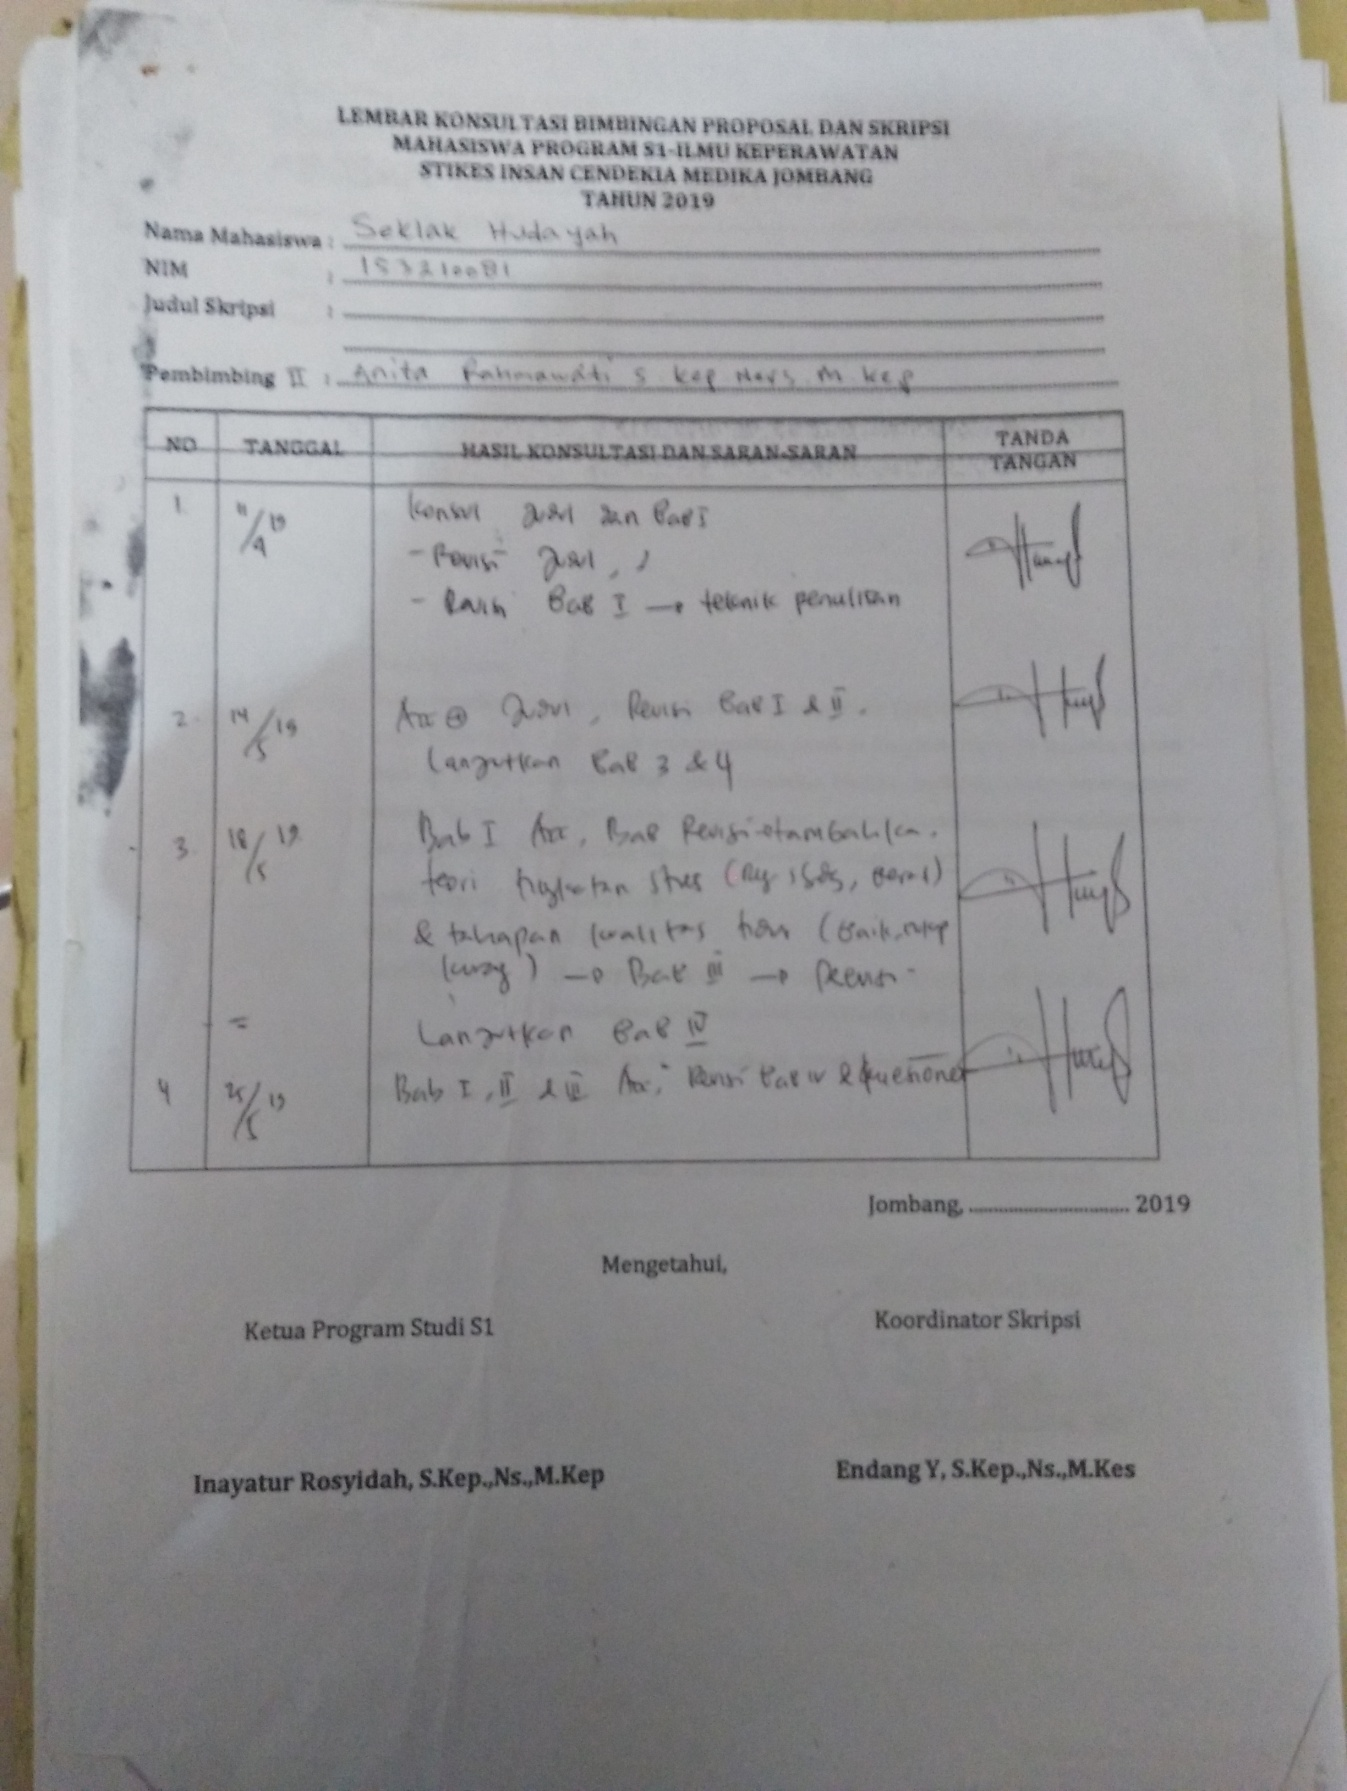 LEMBAR KONSULTASI BIMBINGAN PROPOSAL DAN SKRIPSI
MAHASISWA PROGRAM S1-ILMU KEPERAWATAN
STIKES INSAN CENDEKIA MEDIKA JOMBANG
TAHUN 2019
Nama Mahasiswa : Seklak Hudayah
NIM : 153210081
Judul Skripsi :
Pembimbing II : Anita Rahmawati S. Kep Ners. M. Kep
NO TANGGAL HASIL KONSULTASI DAN SARAN-SARAN TANDA TANGAN
1. 11/4 19 Konsul Judul dan Bab I
- Revisi Judul,
- Revisi Bab I → teknik penulisan
2. 14/5 19 Acc Judul, Revisi Bab I & II.
Lanjutkan Bab 3 & 4
3. 18/5 19 Bab I Acc, Bab Revisi tambahkan
teori tingkatan stres
& tahapan kualitas tidur (Baik, cukup
kurang) → Bab III → Revisi
= Lanjutkan Bab IV
4 25/5 19 Bab I, II & III Acc, Revisi Bab IV & kuesioner
Jombang, .................................. 2019
Mengetahui,
Ketua Program Studi S1 Koordinator Skripsi
Inayatur Rosyidah, S.Kep.,Ns.,M.Kep Endang Y, S.Kep.,Ns.,M.Kes